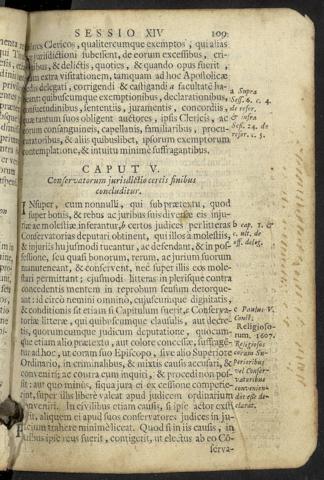 SESSIO XIV 109
nes Clericos, qualitercumque exemptos, qui alias
jurisdictioni subessent, de eorum excessibus, cri-
nibus, & delictis, quoties, & quando opus fuerit,
am extra visitationem, tamquam ad hoc Apostolicæ
dis delegati, corrigendi & castigandi facultatē ha-
eant: quibuscumque exemptionibus, declarationibus,
onsuetudinibus, sententiis, juramentis, concordiis,
uæ tantum suos obligent auctores, ipsis Clericis, ac
orum consanguineis, capellanis, familiaribus, procu-
ratoribus, & aliis quibuslibet, ipsorum exemptorum
contemplatione, & intuitu minimè suffragantibus.
a Supra
Sess. 6. c. 4.
de refor.
& infra
Sess. 24. de
refor. c. 5.
CAPUT V.
Conservatorum jurisdictio certis finibus
concluditur.
INsuper, cum nonnulli, qui sub prætextu, quod
super bonis, & rebus ac juribus suis diversæ eis inju-
riæ ac molestiæ inferantur, b certos judices per litteras
Conservatorias deputari obtinent, qui illos à molestiis,
& injuriis hujusmodi tueantur, ac defendant, & in pos-
sessione, seu quasi bonorum, rerum, ac jurium suorum
manuteneant, & conservent, nec super illis eos mole-
stari permittant; ejusmodi litteras in plerisque contra
concedentis mentem in reprobum sensum detorque-
ant: id circò nemini omninò, cujuscumque dignitatis,
& conditionis sit etiam si Capitulum fuerit, c Conserva-
toriæ litteræ, qui quibuscumque clausulis, aut decre-
tis, quorumcumque judicum deputatione, quocum-
que etiam alio prætextu, aut colore concessæ, suffragē-
tur ad hoc, ut coram suo Episcopo, sive alio Superiore
Ordinario, in criminalibus, & mixtis causis accusari, &
conveniri, ac contra eum inquiri, & procedi non pos-
sit: aut quo minùs, si qua jura ei ex cessione compete-
rint, super illis liberè valeat apud judicem ordinarium
conveniri. In civilibus etiam causis, si ipse actor exsti-
terit, aliquem ei apud suos conservatores judices in ju-
dicium trahere minimè liceat. Quod si in iis causis, in
quibus ipse reus fuerit, contigerit, ut electus ab eo Cō-
serva-
b cap. 1. &
c. ult. de
off. deleg.
c Paulus V.
Const.
Religioso-
rum. 1607.
Religiosos
coram Su-
perioribus
vel Conser-
vatoribus
conveniendi
dit esse de-
clarat.